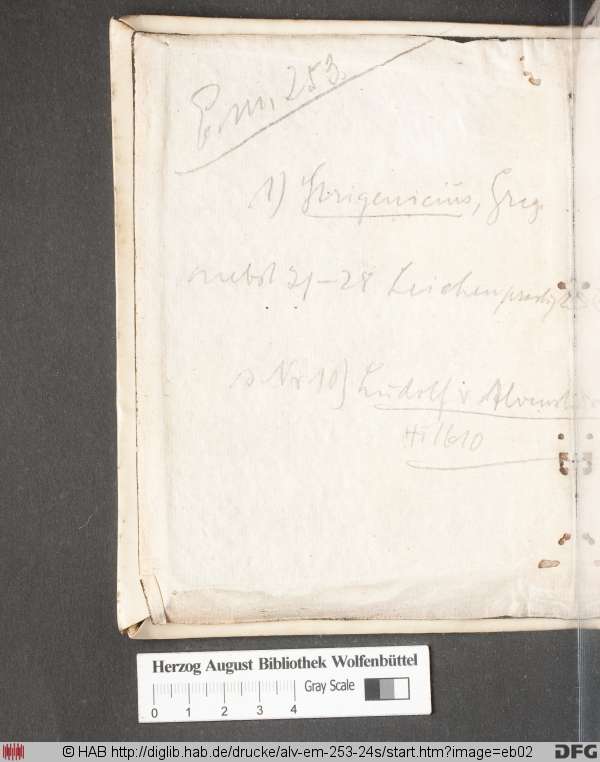 Em. 253.
1) Strigenicius, Greg
nebst 21-28 Leichenpredigt
s Nr 10) Ludolf v Alvensleben
1610
Herzog August Bibliothek Wolfenbüttel
Gray Scale
0 1 2 3 4
© HAB http://diglib.hab.de/drucke/alv-em-253-24s/start.htm?image=eb02
DFG